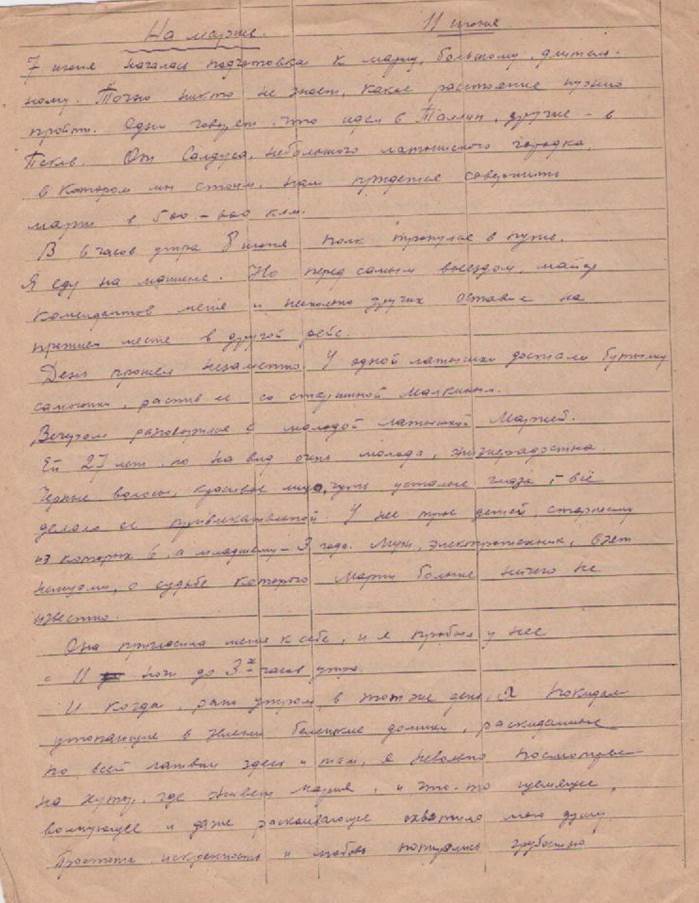 На марше. 11 июня
7 июня началась подготовка к маршу, большому, длитель-
ному. Точно никто не знает, какое расстояние нужно
пройти. Одни говорят, что идем в Таллин, другие – в
Псков. От Салдуса, небольшого латышского городка,
в котором мы стоим, нам придется совершить
марш в 500–600 клм.
В 6 часов утра 8 июня полк тронулся в путь.
Я еду на машине. Но перед самым выездом, майор
Комендантов меня и несколько других оставил на
прежнем месте в другой рейс.
День прошел незаметно. У одной латышки достали бутылку
самогонки, распив ее со старшиной Малкиным.
Вечером разговорился с молодой латышкой Марией.
Ей 27 лет, но на вид очень молода, жизнерадостна.
Черные волосы, красивое лицо, чуть усталые глаза, – всё
делало ее привлекательной. У нее трое детей, старшему
из которых 6, а младшему – 3 года. Муж, электротехник, взят
немцами, о судьбе которого Марии больше ничего не
известно.
Она пригласила меня к себе, и я пробыл у нее
с 11 ночи до 3х часов утра.
И когда, рано утром в этот же день, я покидал
утопающие в зелени беленькие домики, раскиданные
по всей Латвии здесь и там, я невольно посмотрел
на хутор, где живет Мария, и что-то щемящее,
волнующее и даже раскаивающее охватило мою душу
Простота, искренность и любовь грубостью